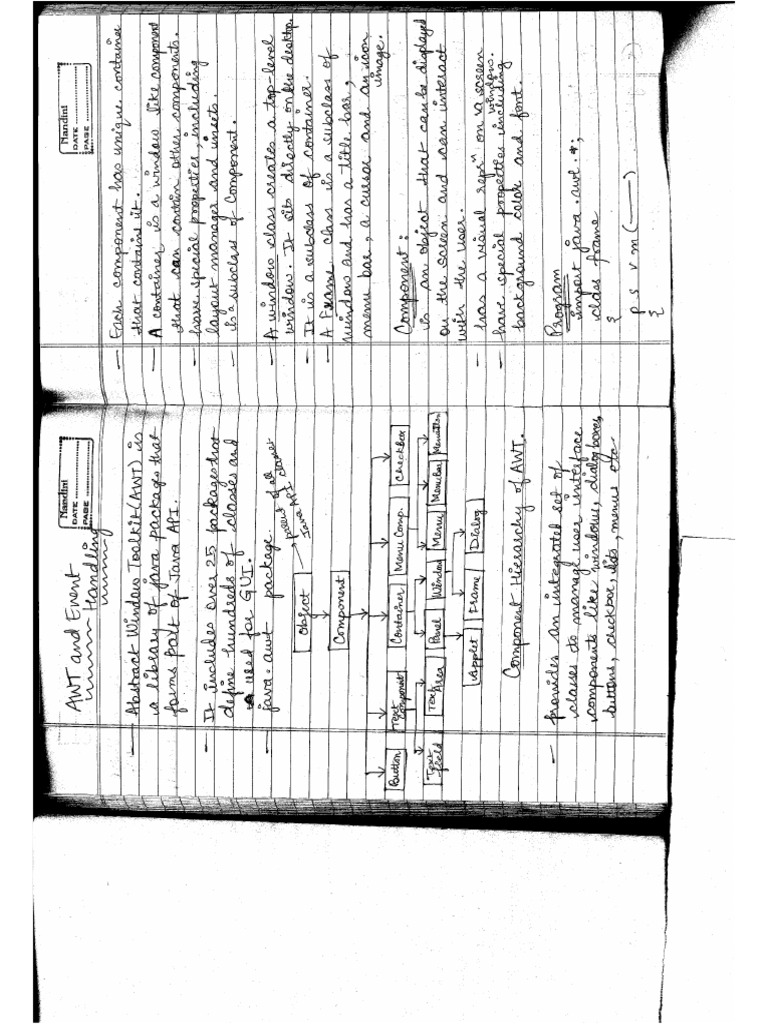 Nandini
DATE
PAGE
AWT and Event
Handling
— Abstract Window Toolkit (AWT) is
a library of java packages that
forms part of Java API.
— It includes over 25 packages that
define hundreds of classes and
used for GUI.
— java.awt package.
parent of all
Java API classes
Object
Component
Button
Text Component
Container
Menu Comp.
Checkbox
Text Field
Text Area
Panel
Window
Menu
MenuBar
Applet
Frame
Dialog
Component Hierarchy of AWT.
— provides an integrated set of
classes to manage user interface
components like windows, dialog boxes,
buttons, checkbox, lists, menus etc
Nandini
DATE
PAGE
— Each component has unique container
that contains it.
— A container is a window like component
that can contain other components.
— have special properties, including
layout manager and insets.
— is a subclass of Component.
— A window class creates a top-level
window. It sits directly on the desktop.
— It is a subclass of container.
— A Frame class is a subclass of
window and has a title bar,
menu bar, a cursor and an icon
image.
Component:
is an object that can be displayed
on the screen and can interact
with the user.
— has a visual repn on a screen
window.
— have special properties including
background color and font.
Program
import java.awt.*;
class frame
{
p s v m (——)
{